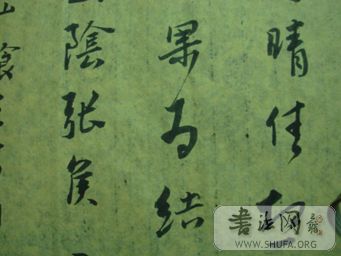 晴佳想
果為結
山陰張侯
書法网
WWW.SHUFA.ORG